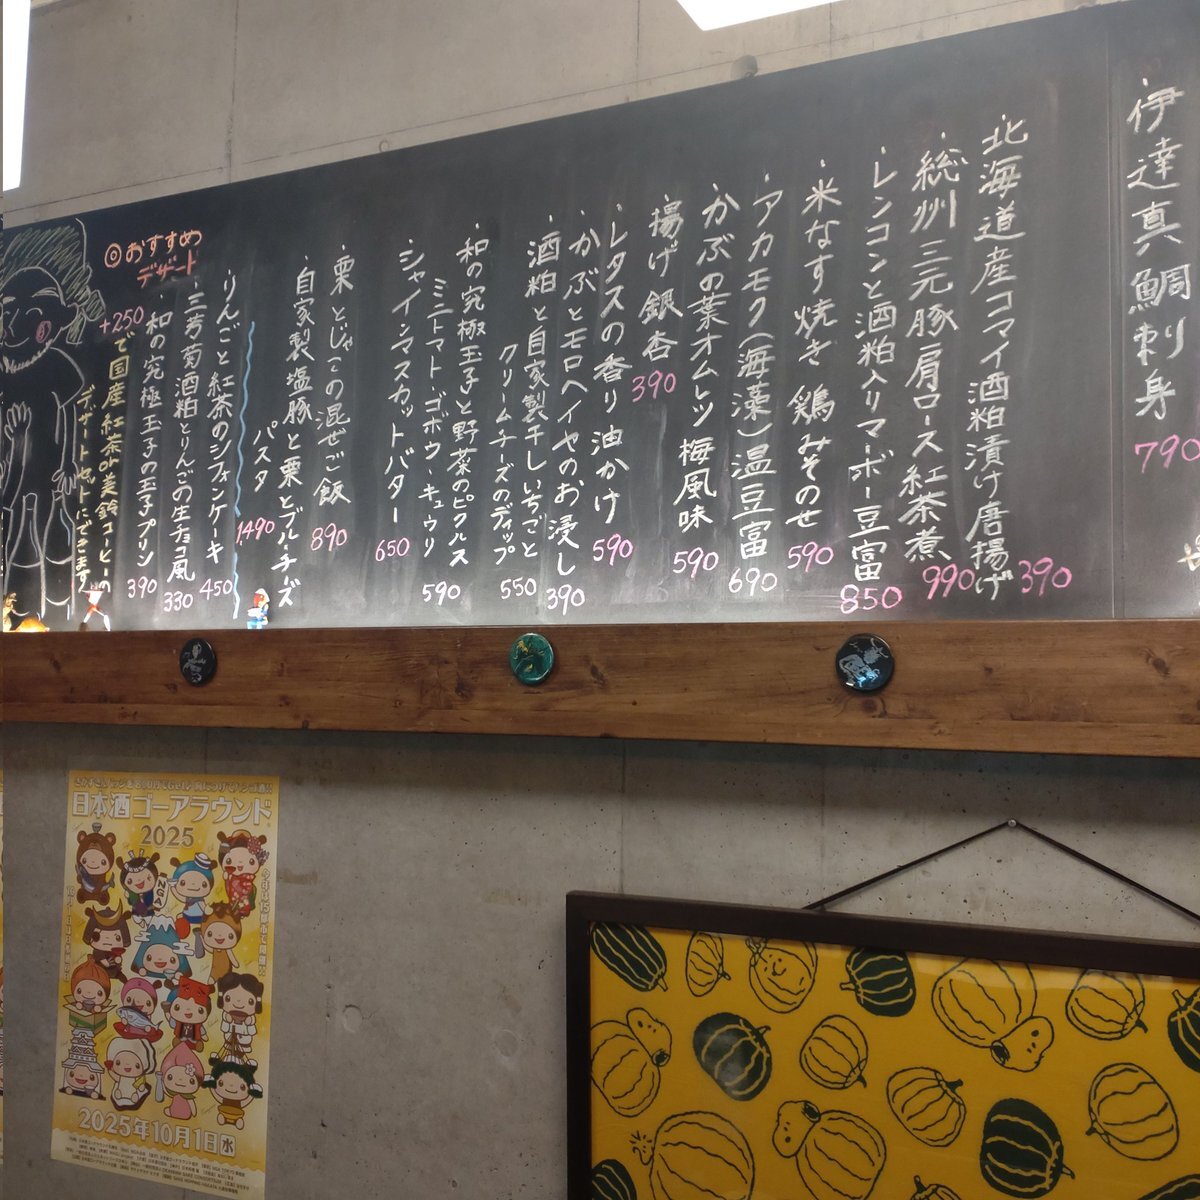 ・伊達真鯛刺身 790
・北海道産コマイ酒粕漬け唐揚げ 390
・総州三元豚肩ロース紅茶煮 990
・レンコンと酒粕入りマーボー豆富 850
・米なす焼き 鶏みそのせ 590
・アカモク(海藻)温豆富 690
・かぶの葉オムレツ 梅風味 590
・揚げ銀杏 390
・レタスの香り油かけ 590
・かぶとモロヘイヤのお浸し 390
・酒粕と自家製干しいちごと
クリームチーズのディップ 550
・和の究極玉子と野菜のピクルス
ミニトマト・ゴボウ・キュウリ 590
・シャインマスカットバター 650
・栗とじゃこの混ぜご飯 890
・自家製塩豚と栗とブルーチーズ
パスタ 1490
◎おすすめ
デザート
・りんごと紅茶のシフォンケーキ 450
・三芳菊酒粕とりんごの生チョコ風 330
・和の究極玉子の玉子プリン 390
+250で国産紅茶or美鈴コーヒーの
デザートセットにできます
日本酒ゴーアラウンド
2025
NGA
2025年10月1日水